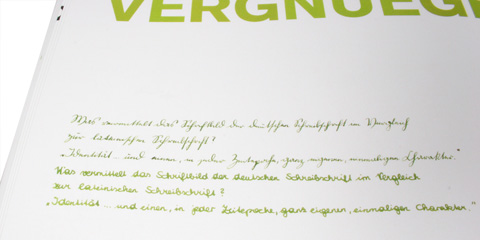 VERGNUEGE
Was vermittelt das Schriftbild der deutschen Schreibschrift im Vergleich
zur lateinischen Schreibschrift?
„Identität ... und einen, in jeder Zeitepoche, ganz eigenen, einmaligen Charakter."
Was vermittelt das Schriftbild der deutschen Schreibschrift im Vergleich
zur lateinischen Schreibschrift?
„Identität .... und einen, in jeder Zeitepoche, ganz eigenen, einmaligen Charakter."